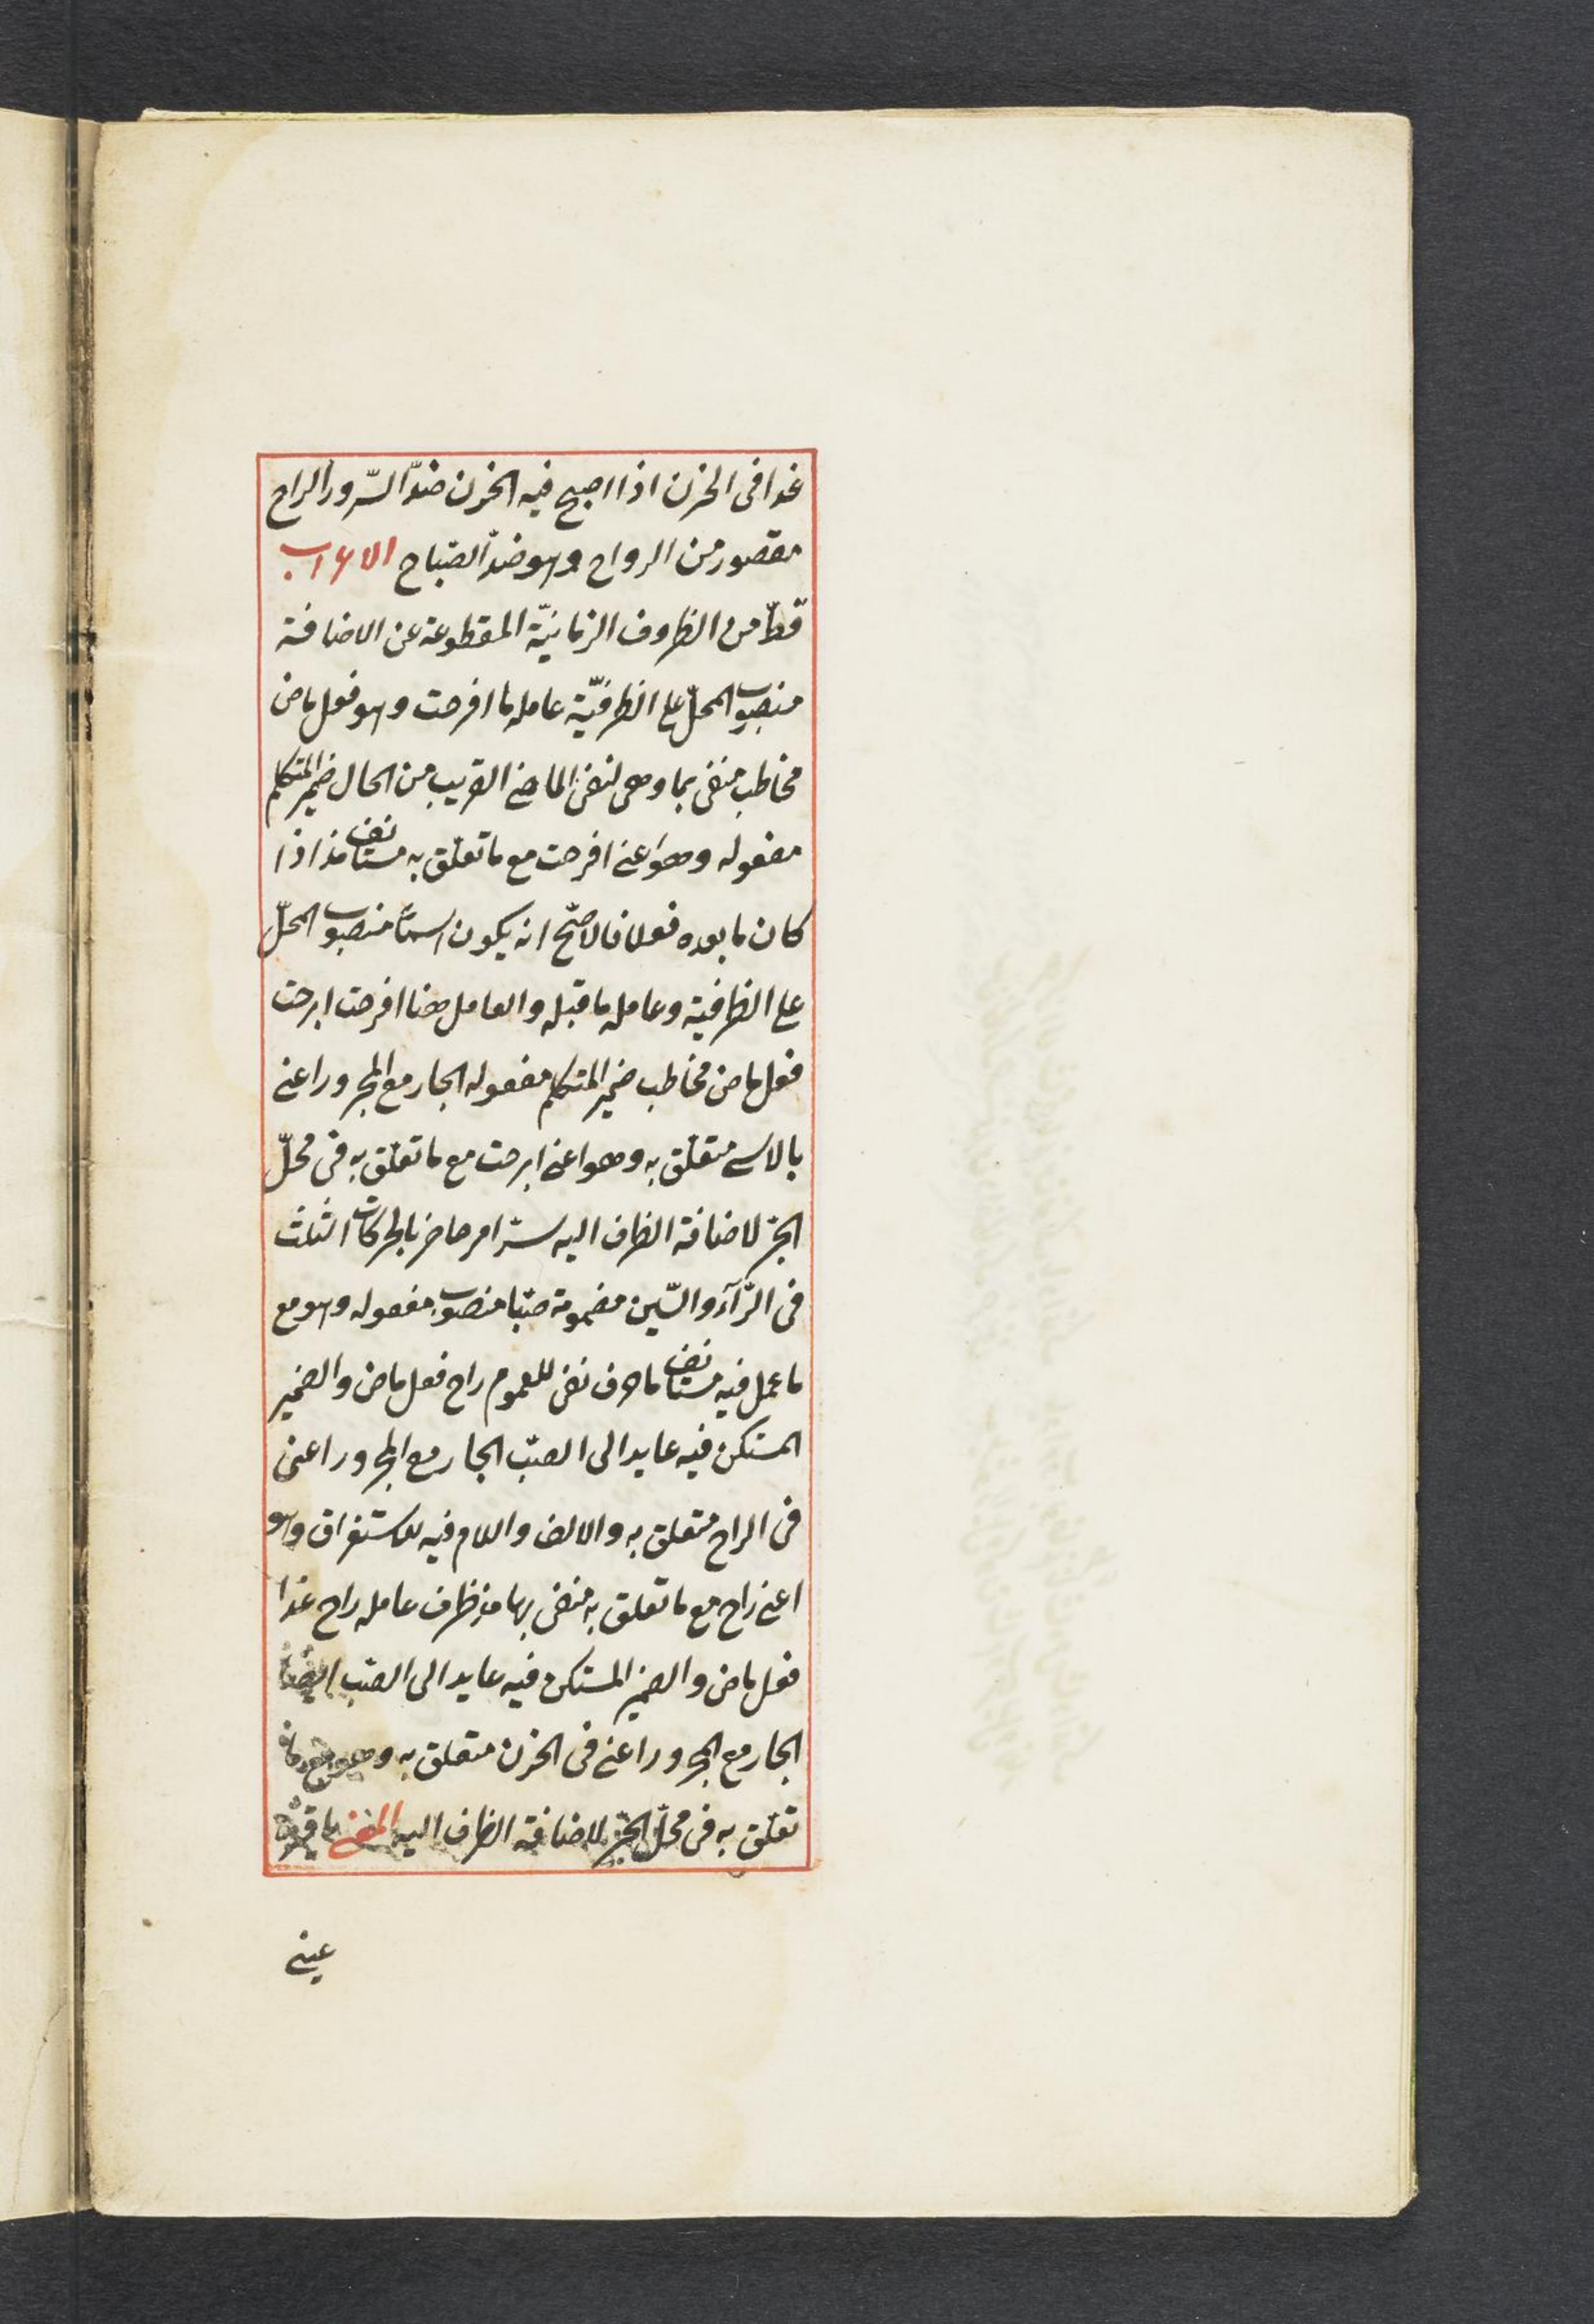 غدا فى الحزن اذا اصبح فيه الحزن ضدّ السّرور الراح
مقصور من الرواح وهو ضدّ الصّباح الاعراب
قطّ من الظروف الزمانيّة المقطوعة عن الاضافة
منصوب المحلّ على الظرفيّة عامله ما افرحت وهو فعل ماض
مخاطب منفى بما وهى لنفى الماضى القريب من الحال ضمير المتكلم
مفعوله وهو اعنى افرحت مع ما تعلّق به مستانف مذ اذا
كان ما بعده فعلا فالاصحّ انه يكون اسمًا منصوب المحلّ
على الظرفية وعامله ما قبله والعامل هنا افرحت ابرحت
فعل ماض مخاطب ضمير المتكلم مفعوله الجار مع المجرور اعنى
بالاسى متعلّق به وهو اعنى ابرحت مع ما تعلّق به فى محلّ
الجرّ لاضافة الظرف اليه سرّ امر حاضر بالحركات الثلث
فى الرّآء والسّين مضمومة صبّا منصوب مفعوله وهو مع
ما عمل فيه مستانف ما حرف نفى للعموم راح فعل ماض والضمير
المستكن فيه عايد الى الصبّ الجار مع المجرور اعنى
فى الراح متعلق به والالف واللام فيه للاستغراق وهو
اعنى راح مع ما تعلق به منفى بها مذ ظرف عامله راح غدا
فعل ماض والضمير المستكن فيه عايد الى الصّب ايضا
الجار مع المجرور اعنى فى الحزن متعلق به وهو مع ما
تعلّق به فى محلّ الجرّ لاضافة الظرف اليه المعنى يا قرّة
عينى